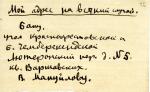 Мой адрес на всякий случай.
Баку.
угол Красноармейской и
б. Генденрейхской
Лютеранский пер. д. №5.
кв. Варшавских.
В. Мануйлову.